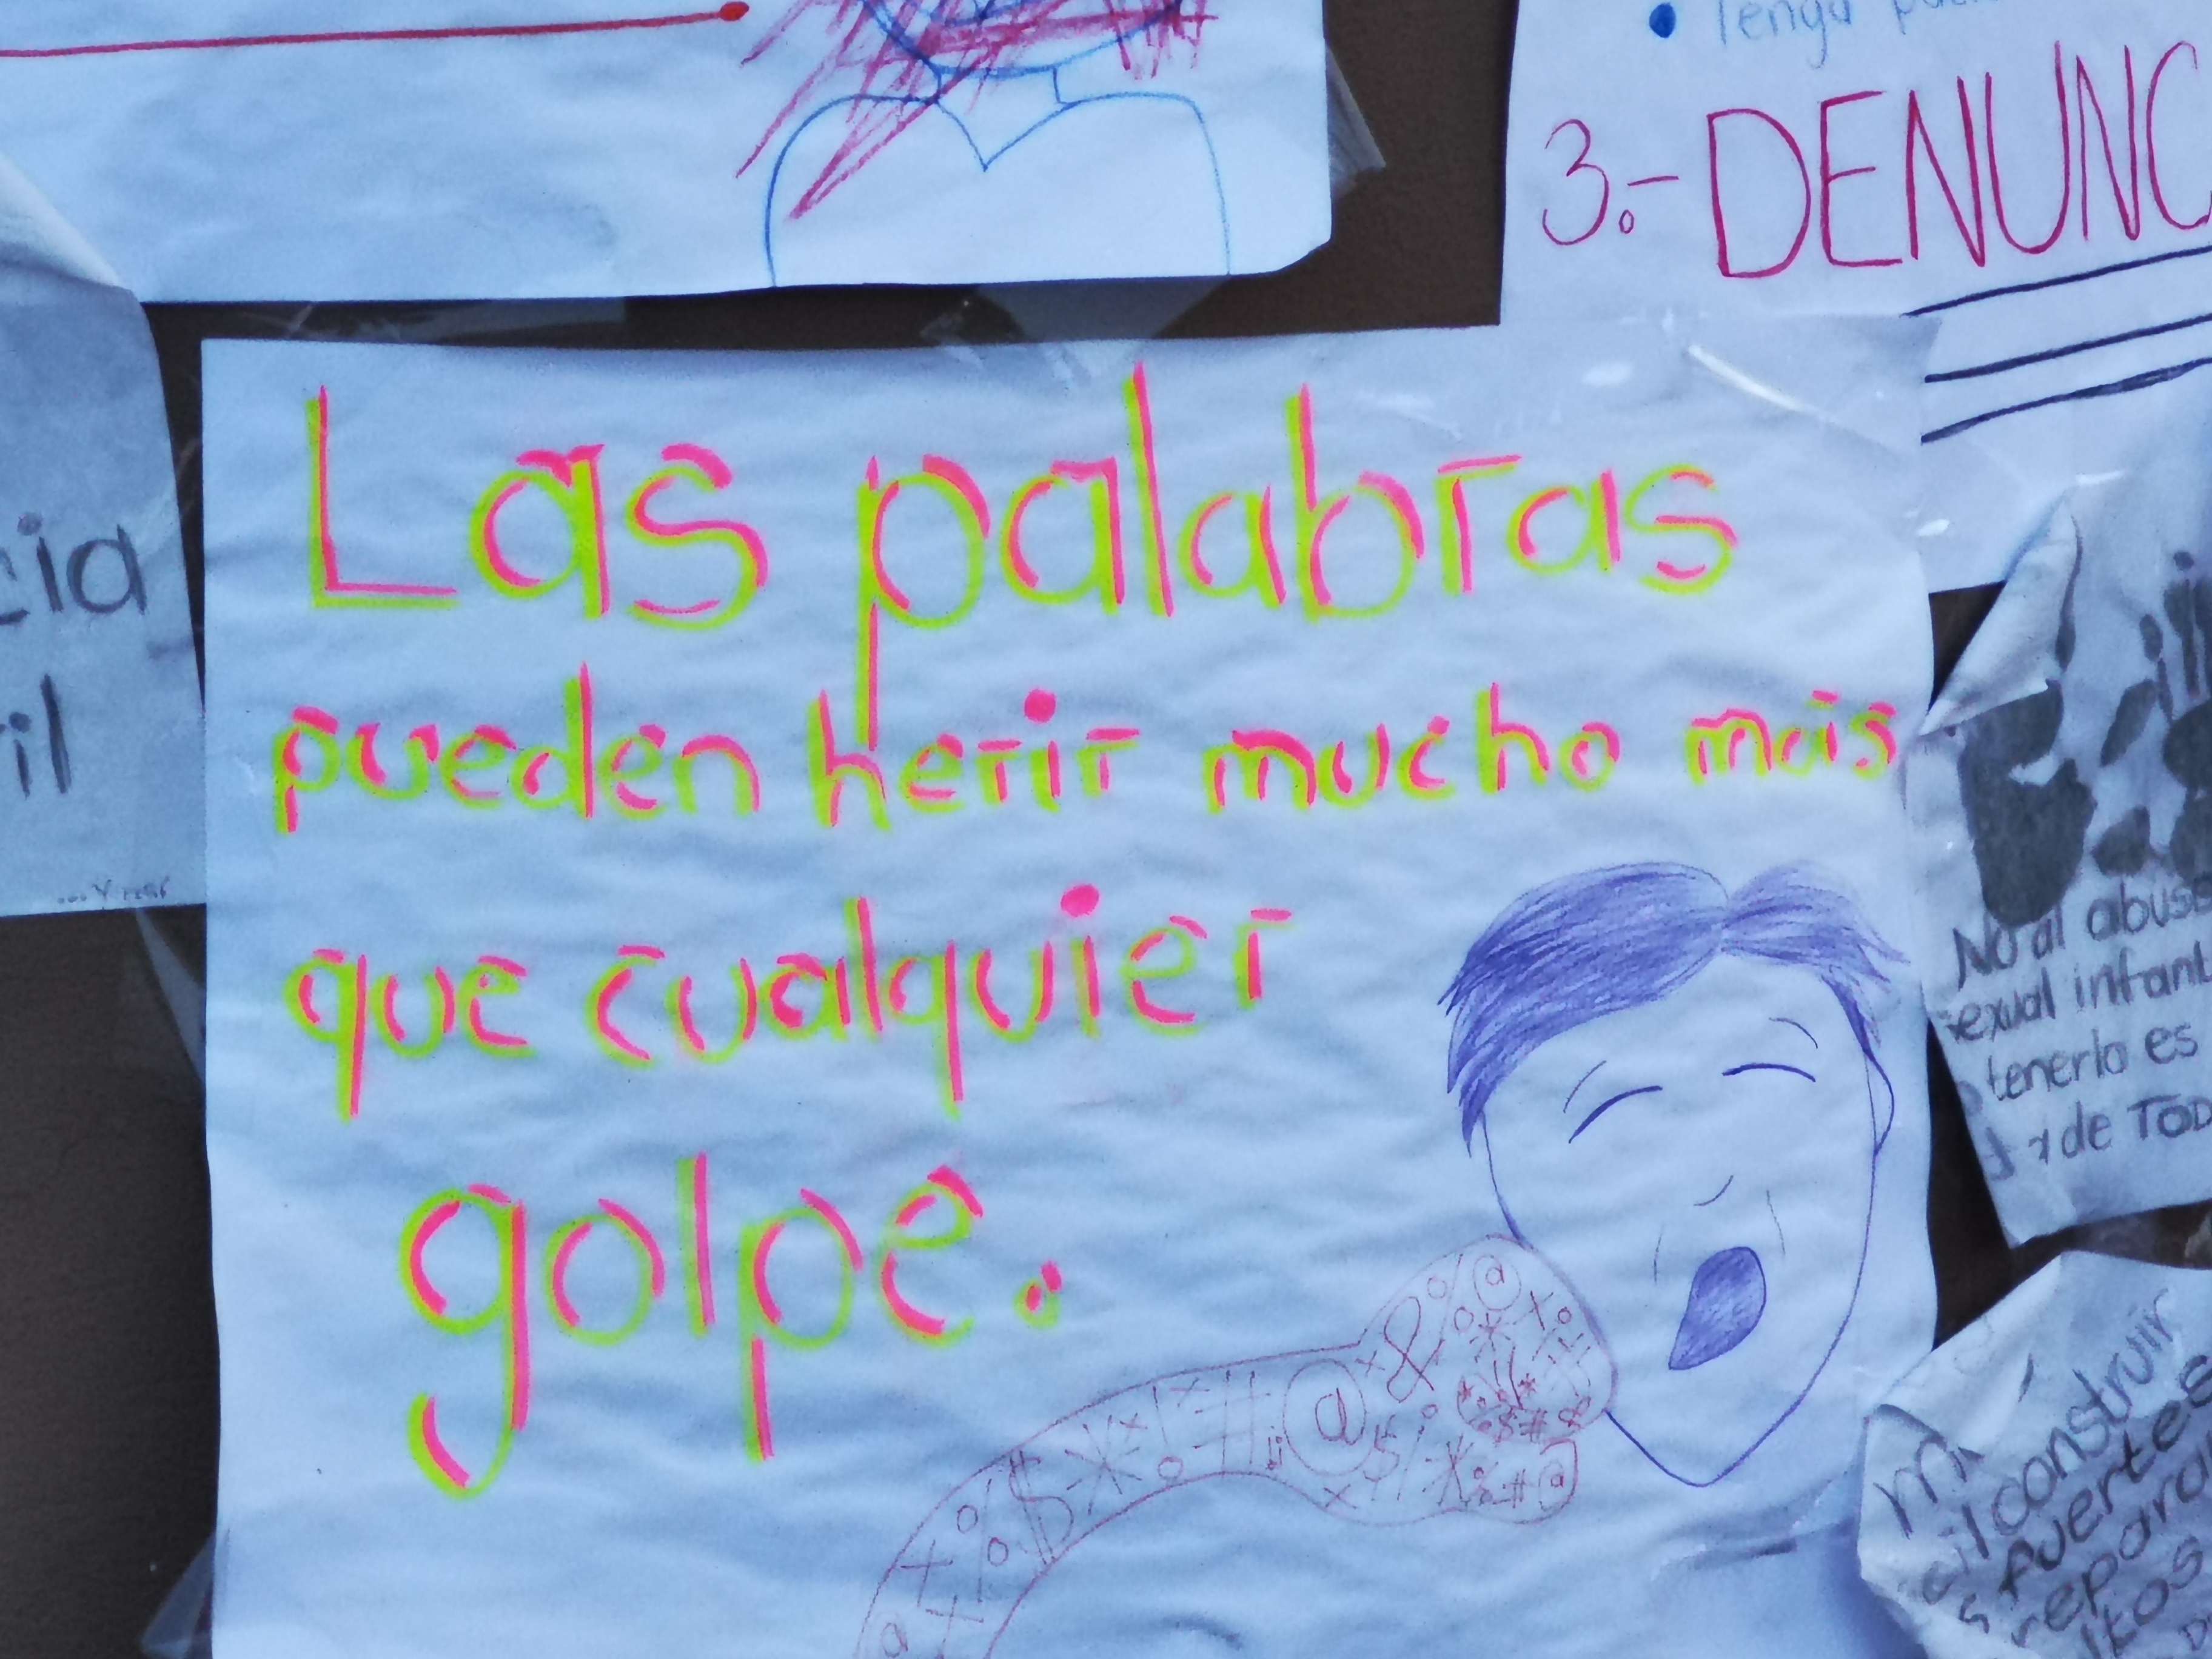 3.- DENUNC
Las palabras
pueden herir mucho más
que cualquier
golpe.
cia
il
No al abuso
sexual infant
tenerlo es
y de TOD
construir
fuertes
reparar